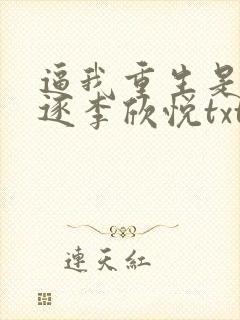 逼我重生是
逐李欣悦txt
連天紅